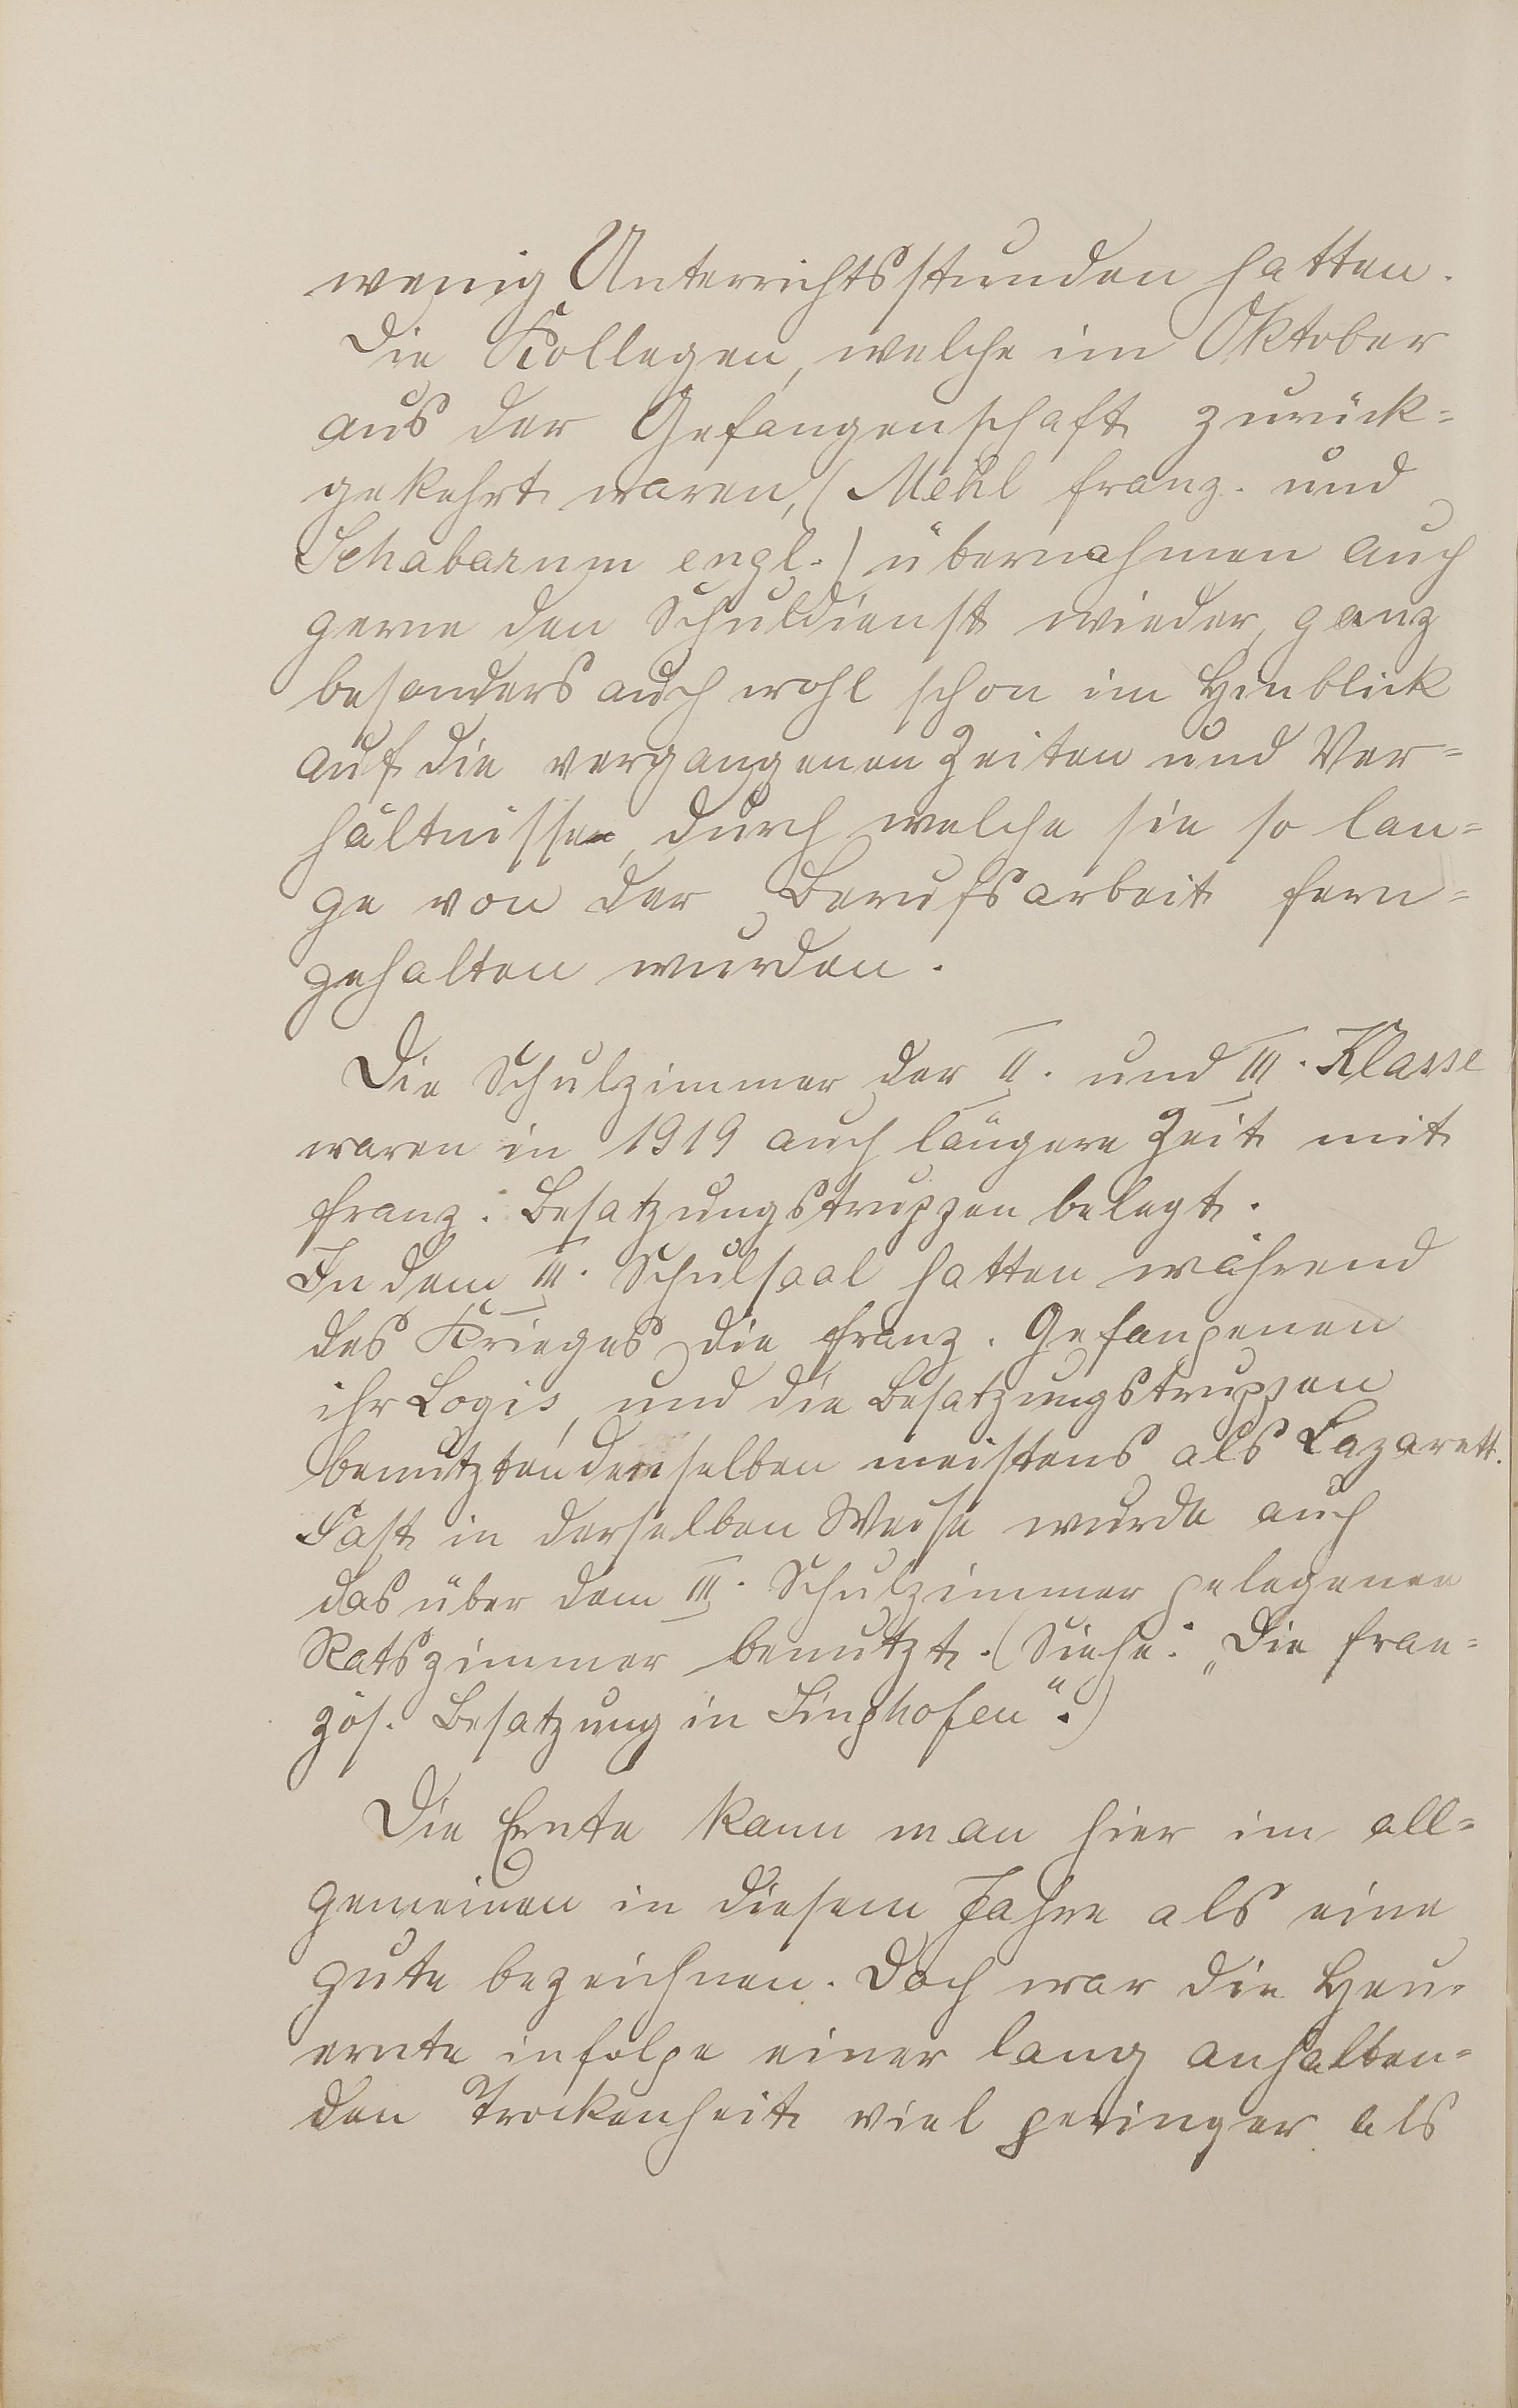 wenig Unterrichtsstunden hatten.
Die Kollegen, welche im Oktober
aus der Gefangenschaft zurück=
gekehrt waren, (Mehl franz. und
Schabarum engl.) übernahmen auch
gerne den Schuldienst wieder, ganz
besonders auch wohl schon im Hinblick
auf die vergangenen Zeiten und Ver=
hältnisse, durch welche sie so lan=
ge von der Berufsarbeit fern=
gehalten wurden.
Die Schulzimmer der II. und III. Klasse
waren in 1919 auch längere Zeit mit
franz. Besatzungstruppen belegt.
In dem III. Schulsaal hatten während
des Krieges die franz. Gefangenen
ihr Logis, und die Besatzungstruppen
benutzten denselben meistens als Lazarett.
Fast in derselben Weise wurde auch
das über dem III. Schulzimmer gelegenen
Ratszimmer benutzt. (Siehe: „Die fran=
zös. Besatzung in Singhofen“.)
Die Ernte kann man hier im all=
gemeinen in diesem Jahre als eine
gute bezeichnen. Doch war die Heu=
ernte infolge einer lang anhalten=
den Trockenheit viel geringer als